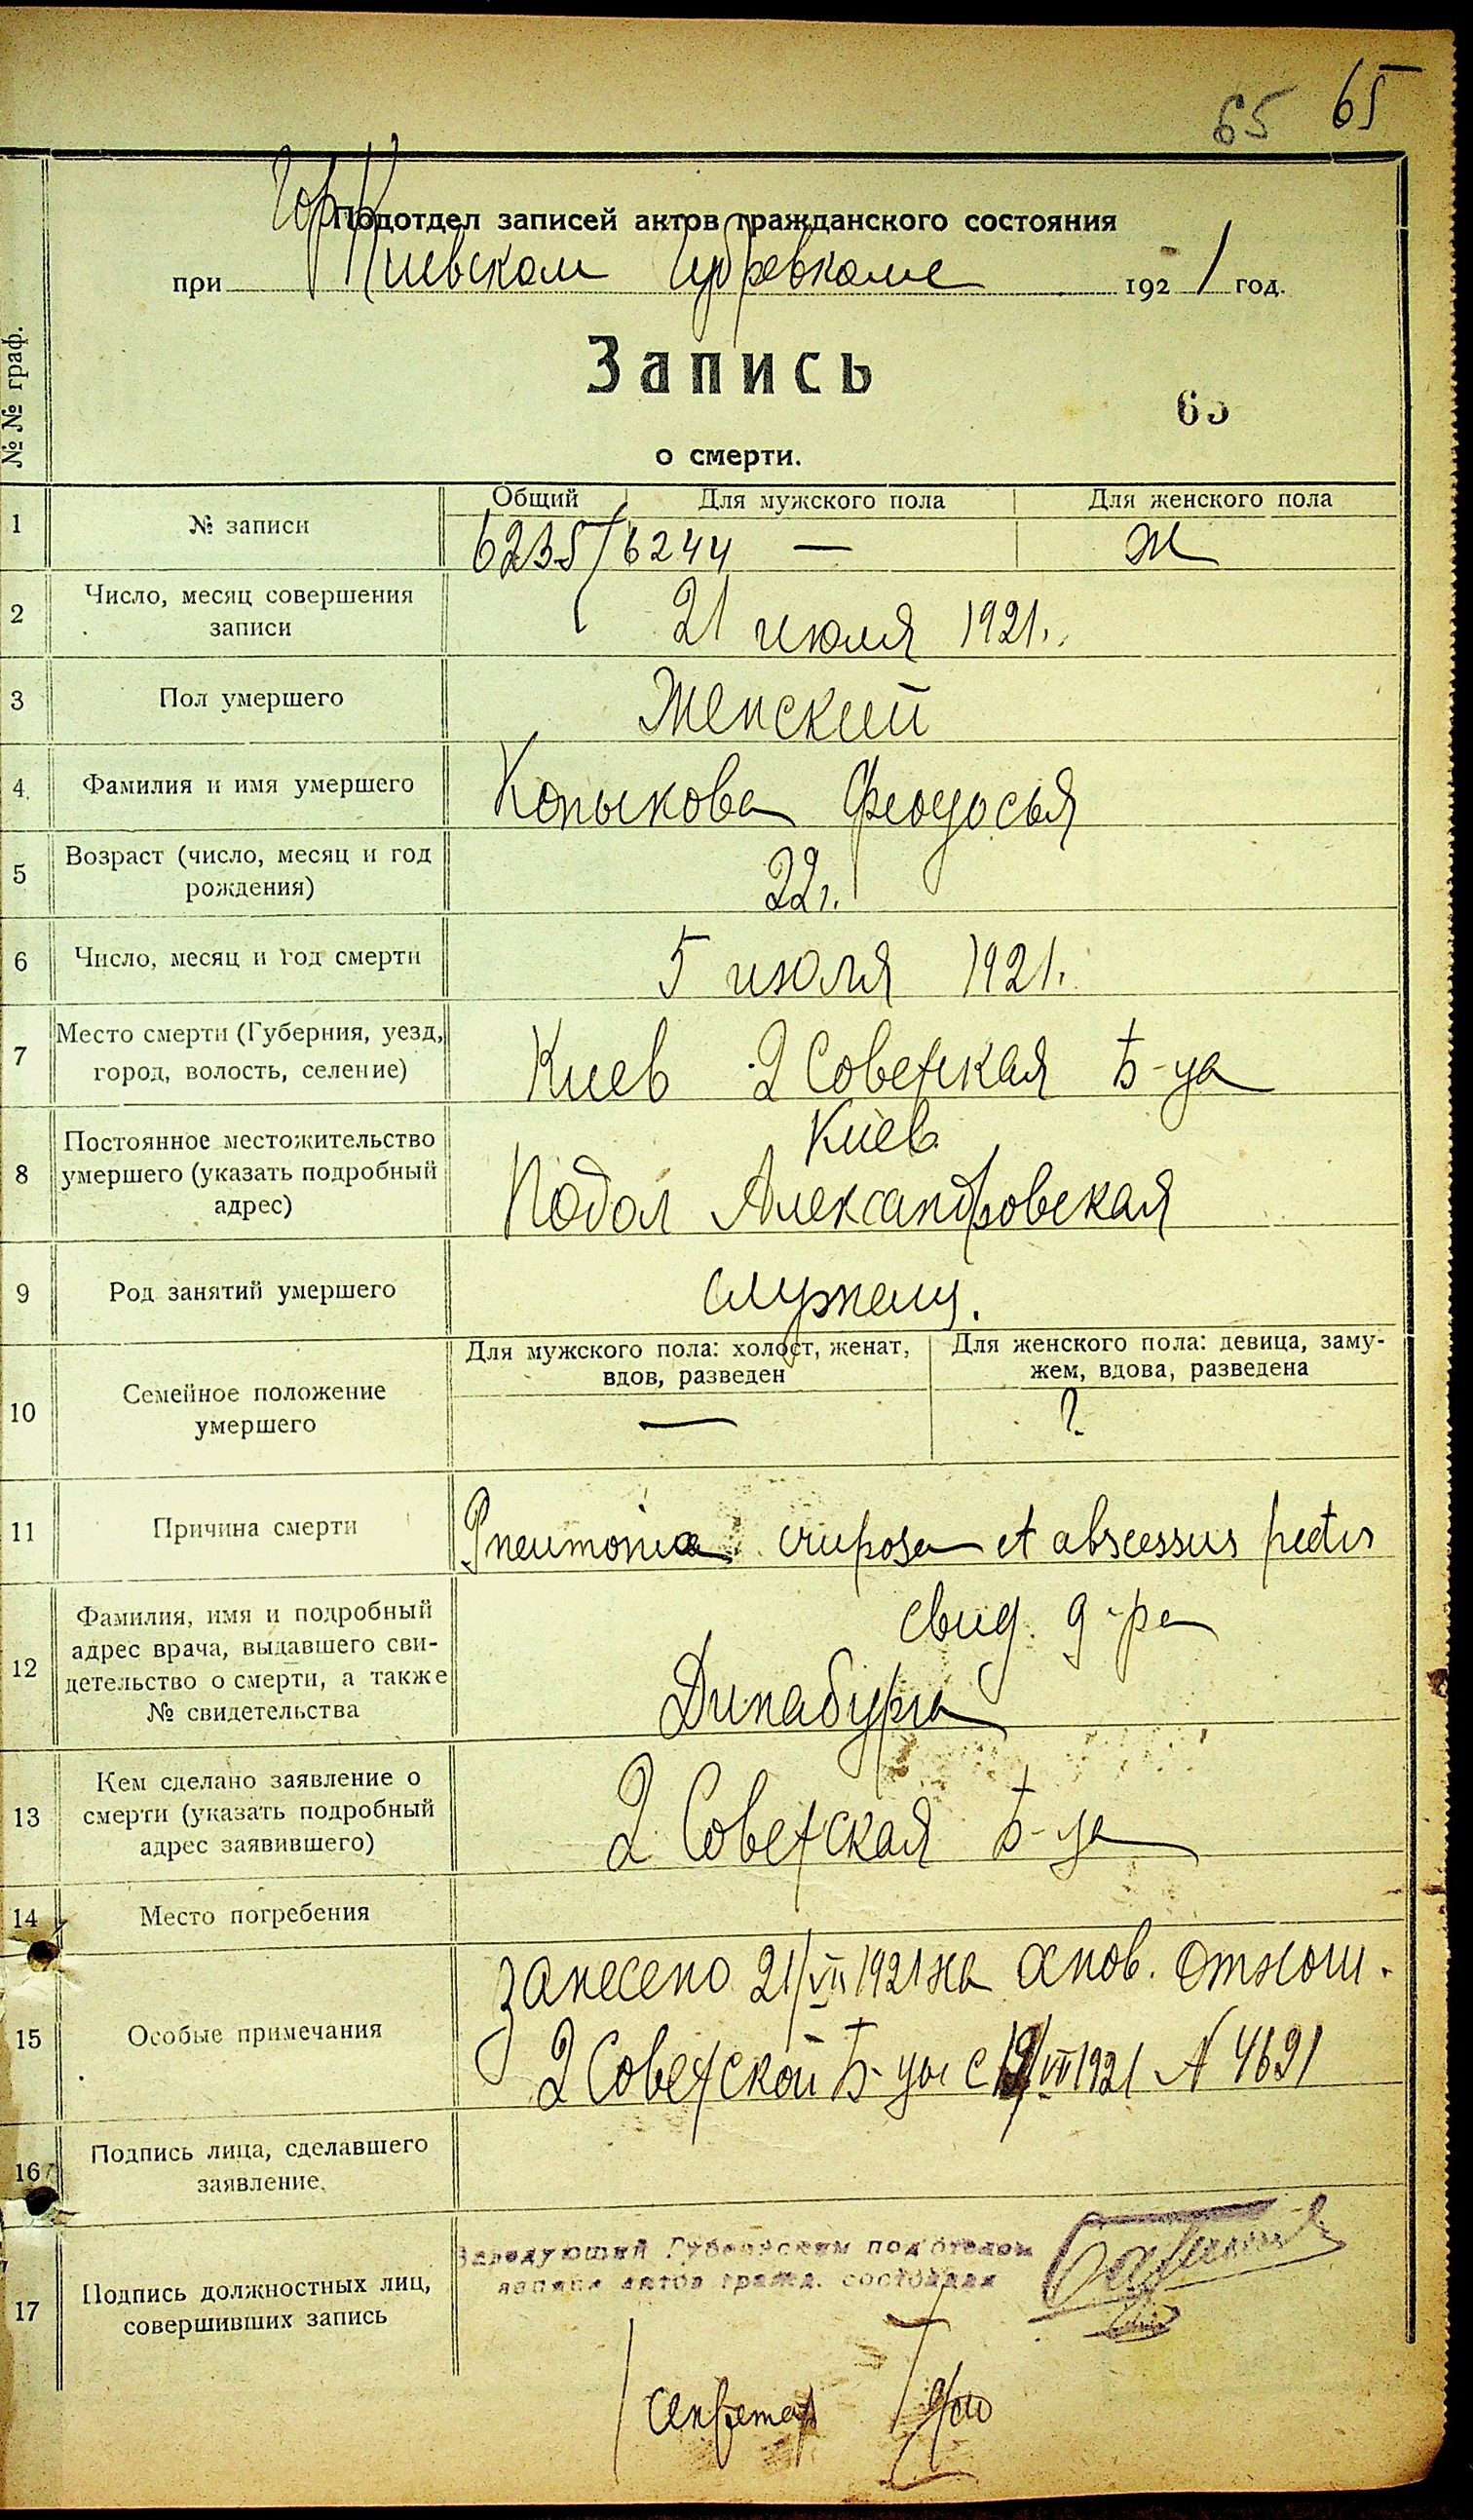 65 65
Подотдел записей актов гражданского состояния
при Киевском Губревкоме 1921 год.
№№ граф.
Запись
65
о смерти.
Общий Для мужского пола Для женского пола
1 № записи 6235/6244 — Ж
2 Число, месяц совершения
записи
21 июля 1921.
3 Пол умершего Женский
4 Фамилия и имя умершего Копыкова Феодосья
5 Возраст (число, месяц и год
рождения)
22 г.
6 Число, месяц и год смерти 5 июля 1921.
7 Место смерти (Губерния, уезд,
город, волость, селение)
Киев 2 Советская Б-ца
8 Постоянное местожительство
умершего (указать подробный
адрес)
Киев
Подол Александровская
9 Род занятий умершего служащ.
10 Семейное положение
умершего
Для мужского пола: холост, женат,
вдов, разведен
Для женского пола: девица, заму-
жем, вдова, разведена
— ?
11 Причина смерти Pneumonia cruposa et abscessus pectis
12 Фамилия, имя и подробный
адрес врача, выдавшего сви-
детельство о смерти, а также
№ свидетельства
свид. д-ра
Динабурга
13 Кем сделано заявление о
смерти (указать подробный
адрес заявившего)
2 Советская Б-ца
14 Место погребения
15 Особые примечания
Занесено 21/VII 1921 на основ. отнош.
2 Советской Б-цы с 19/VII 1921 N 4691
16 Подпись лица, сделавшего
заявление.
17 Подпись должностных лиц,
совершивших запись
Заведующий Губернским подотделом
записи актов гражд. состояния
Секретарь